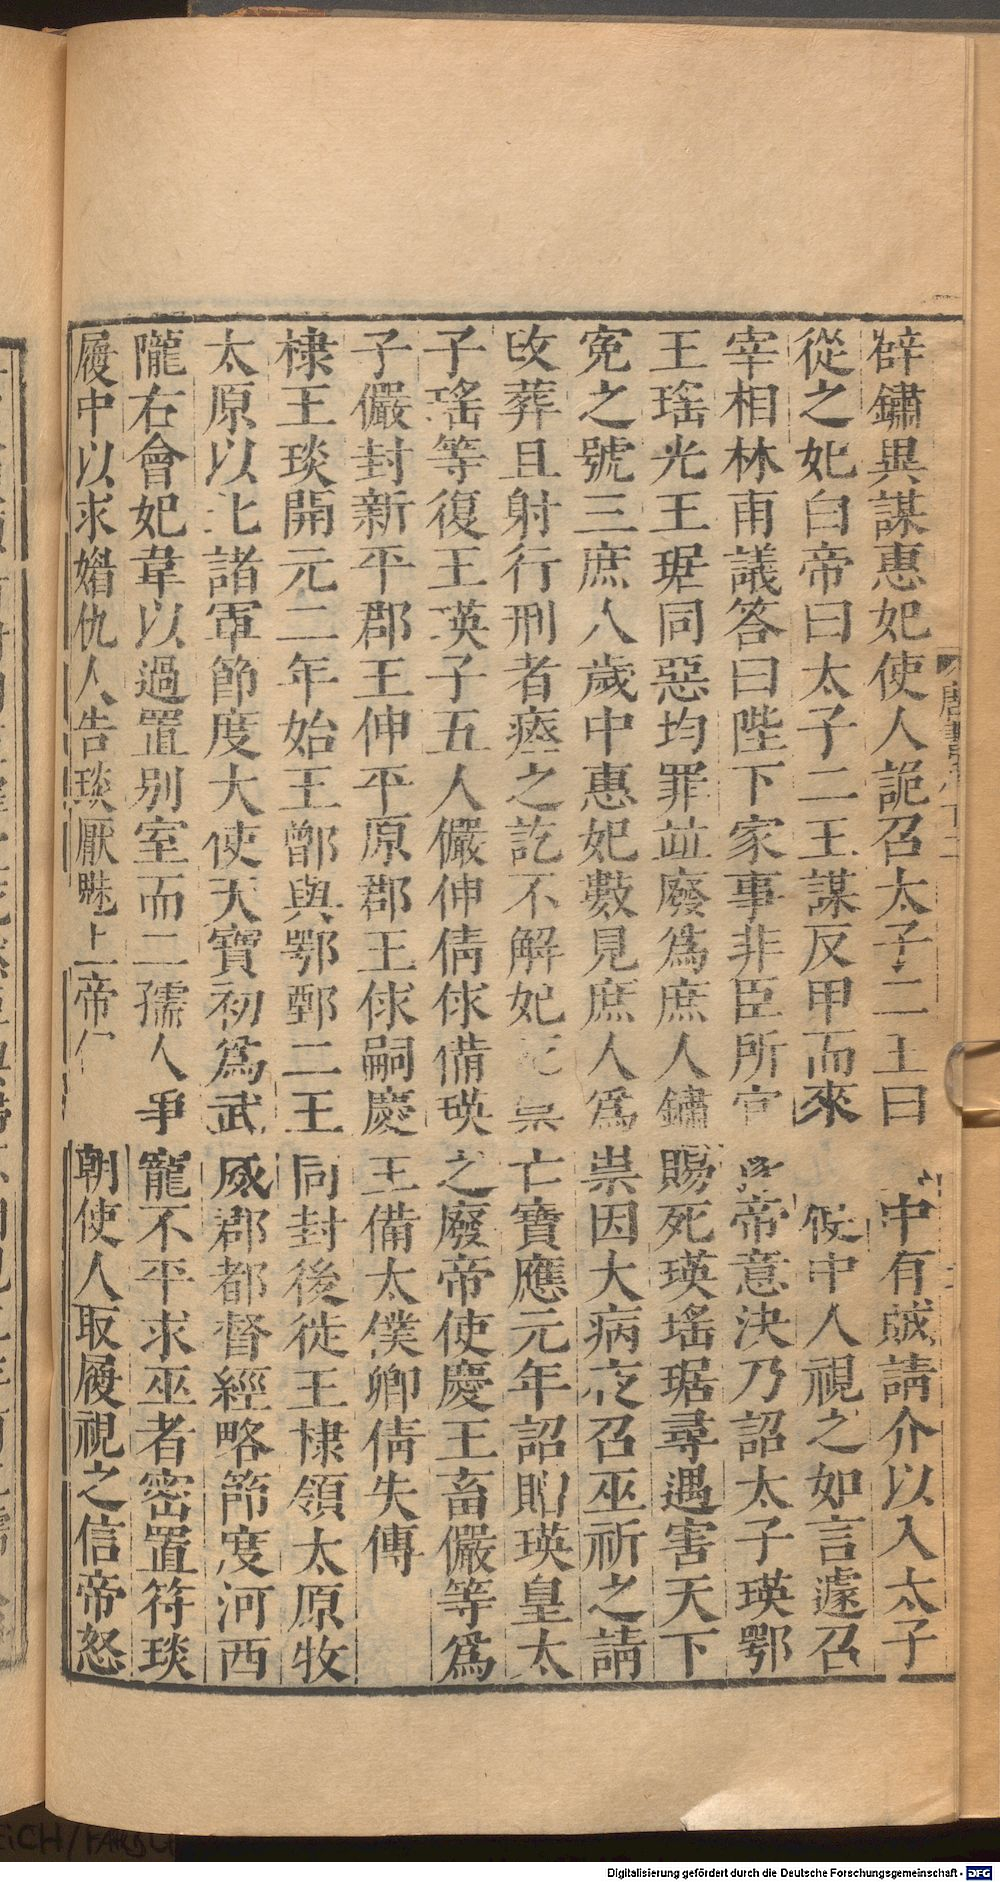 薜鏽異謀惠妃使人詭召太子二王曰 中有賊請介以入太子
從之妃白帝曰太子二王謀反甲而來 使中人視之如言遽召
宰相林甫議答曰陛下家事非臣所宜 帝意決乃詔太子瑛鄂
王瑤光王琚同惡均罪並廢為庶人鏽賜死瑛瑤琚尋遇害天下
冤之號三庶人歲中惠妃數見庶人為祟因大病夜召巫祈之請
改葬且射行刑者瘞之訖不解妃死祟亡寶應元年詔贈瑛皇太
子瑤等復王瑛子五人儼伸倩俅備瑛之廢帝使慶王畜儼等為
子儼封新平郡王伸平原郡王俅嗣慶王備太僕卿倩失傳
棣王琰開元二年始王鄫與鄂鄄二王同封後徙王棣領太原牧
太原以北諸軍節度大使天寶初為武威郡都督經略節度河西
隴右會妃韋以過置別室而二孺人爭寵不平求巫者密置符琰
履中以求媚仇人告琰厭魅上帝伺朝使人取履視之信帝怒
唐書
Digitalisierung gefördert durch die Deutsche Forschungsgemeinschaft - DFG